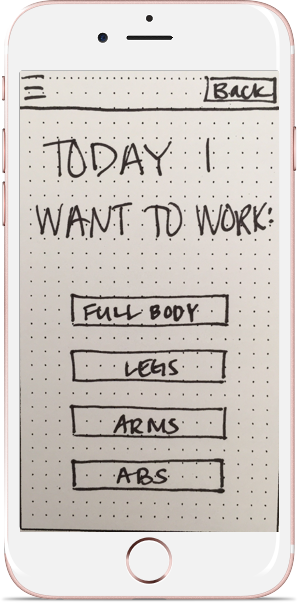 Back
TODAY I
WANT TO WORK:
FULL BODY
LEGS
ARMS
ABS